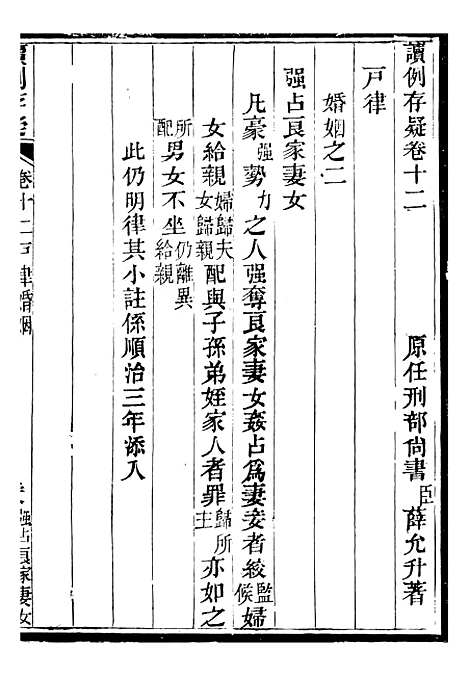 讀例存疑卷十二　原任刑部尙書臣薛允升著
戸律
婚姻之二
强占良家妻女
凡豪强勢力之人强奪良家妻女姦占爲妻妾者絞監候婦
女給親婦歸夫女歸親配與子孫弟姪家人者罪歸所主亦如之
所配男女不坐仍離異給親
此仍明律其小註係順治三年添入
讀例存疑 卷十二戸律婚姻 强占良家妻女